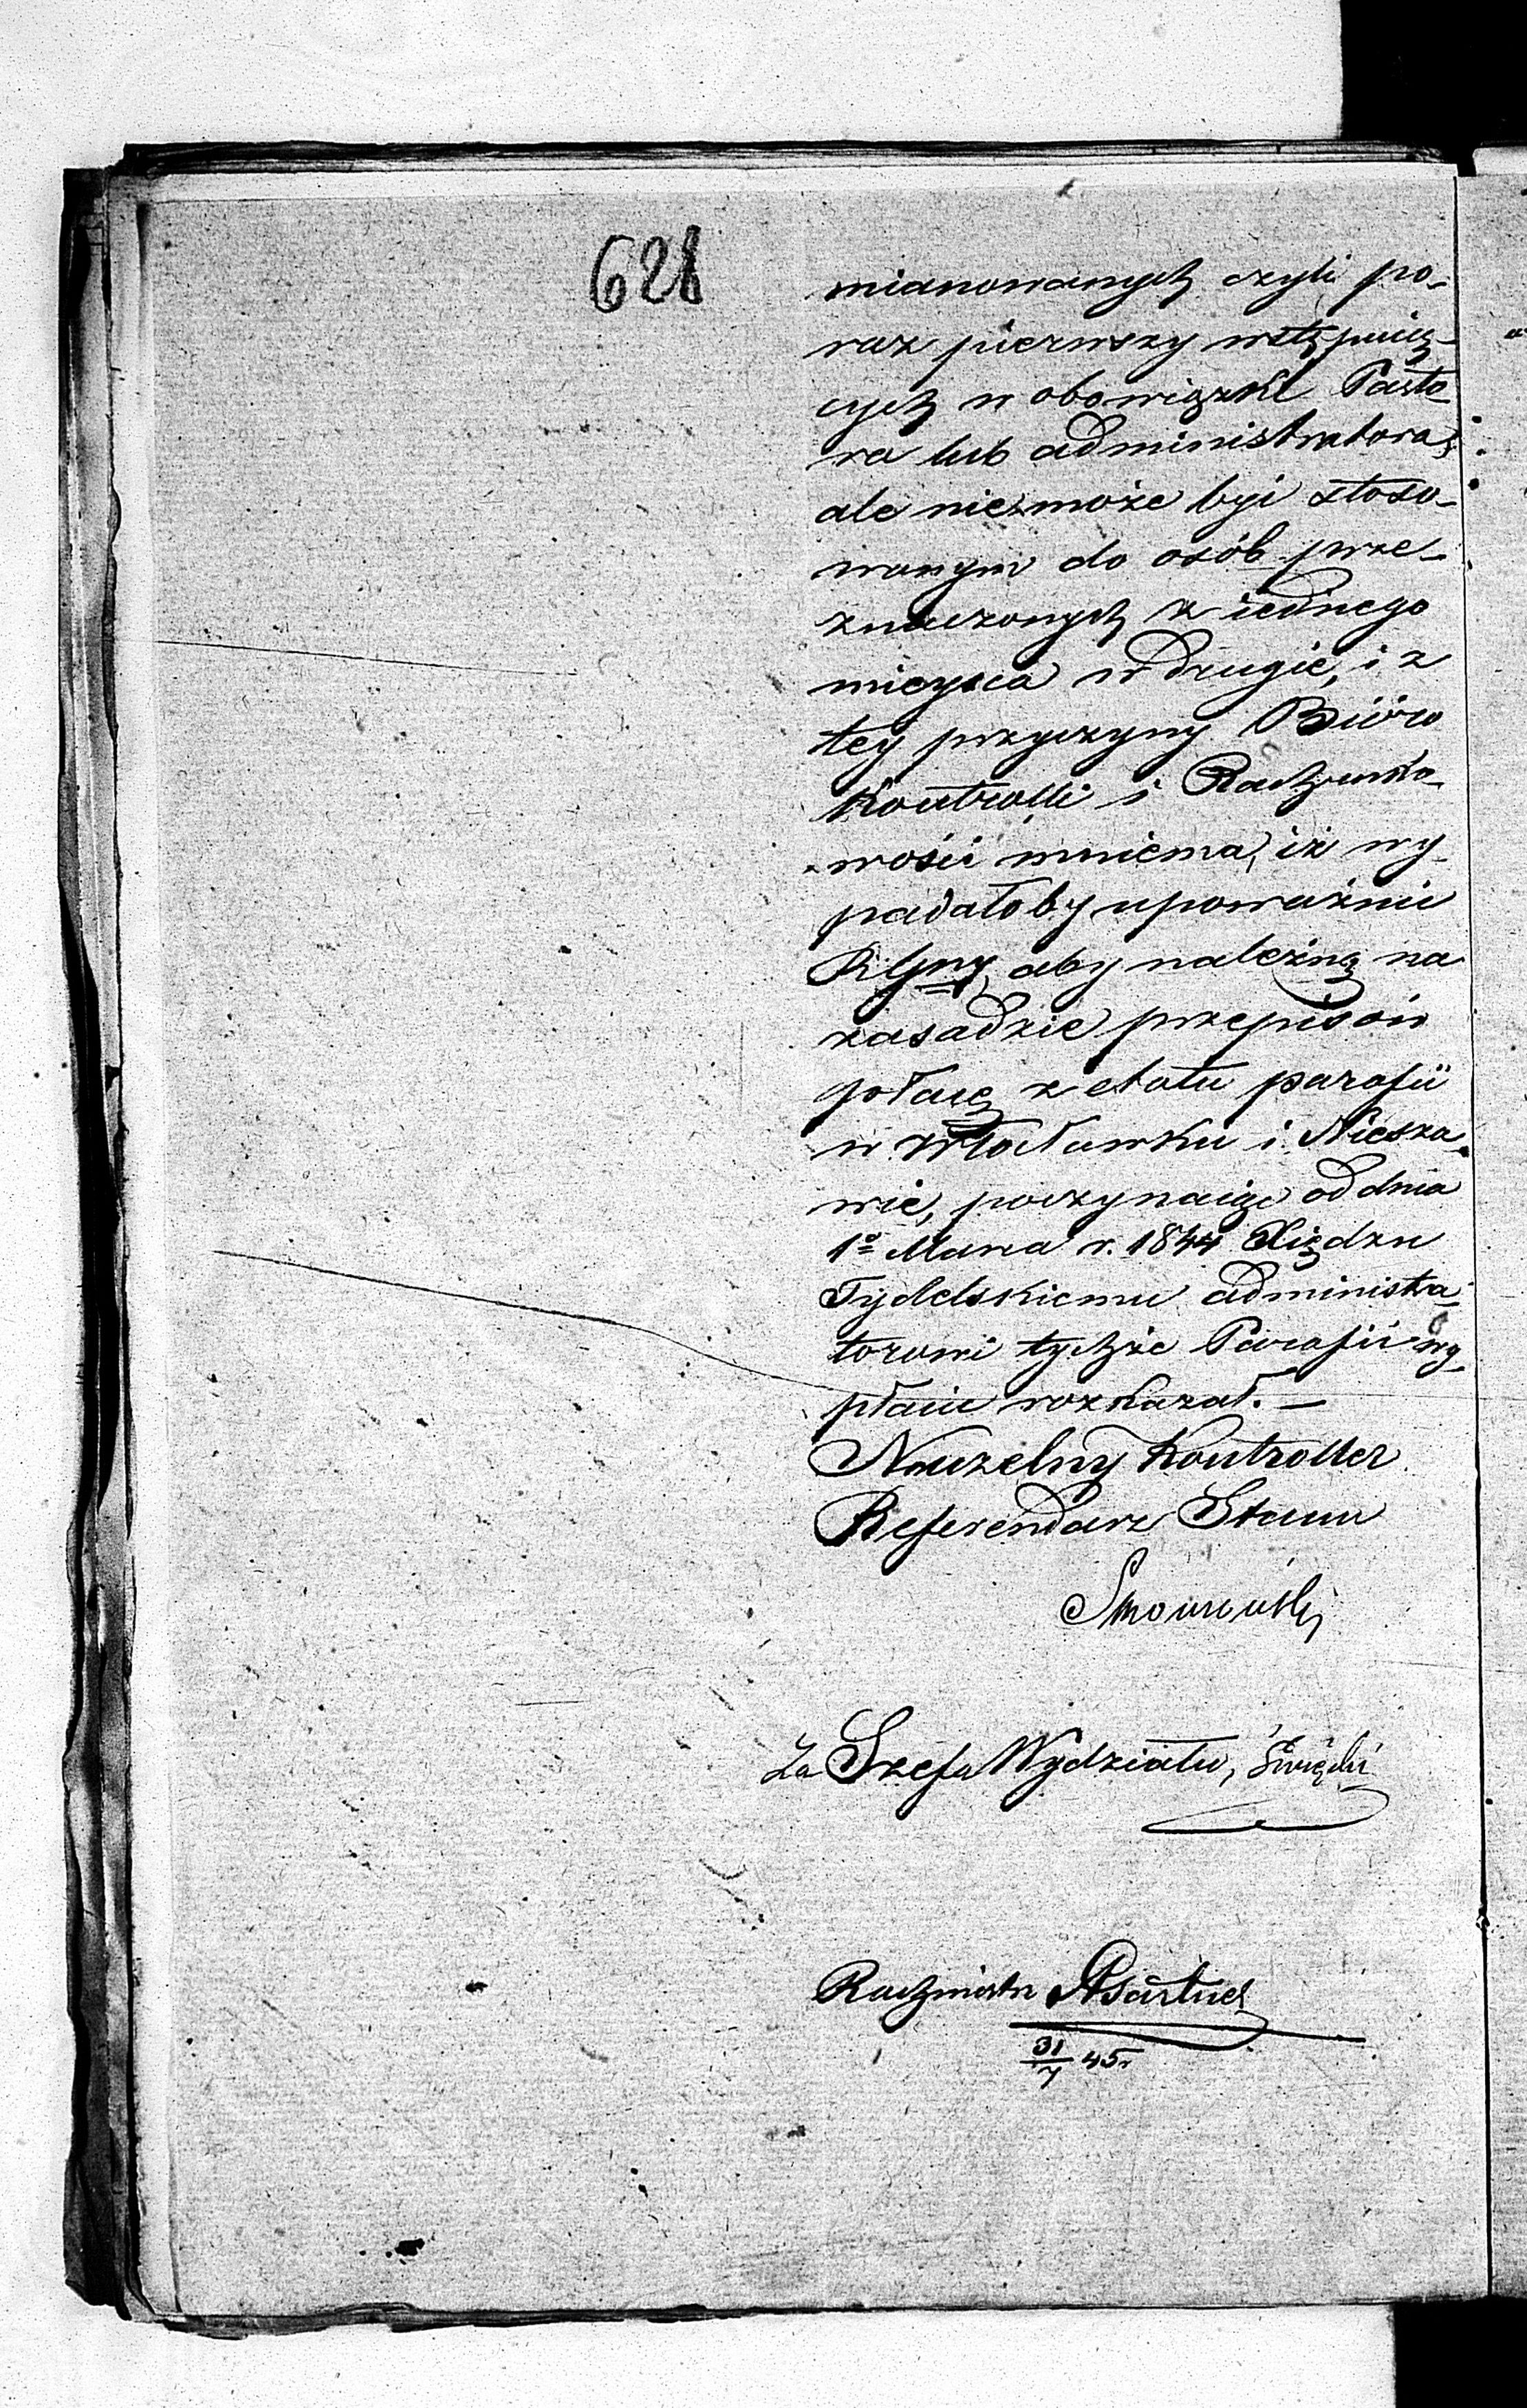 628
mianowanych czyli po-
raz pierwszy wstępuią-
cych w obowiązki Pasto-
ra lub administratora,
ale nie może być stoso-
wanym do osób prze-
znaczonych z iednego
mieysca w drugie, i z
tey przyczyny Bióro
Kontrolli i Rachunko-
wości mniema, iż wy-
padałoby upoważnić
RGny, aby należną na
zasadzie przepisów
płacę z etatu parafii
w Włocławku i Niesza-
wie, poczynaiąc od dnia
1º Marca r. 1844 Xiędzu
Tydelskiemu administra-
torowi tychże Parafii wy-
płacić rozkazał. —
Naczelny Kontroller
Referendarz Stanu
Za Szefa Wydziału,
Rachmistrz
31/7 45r